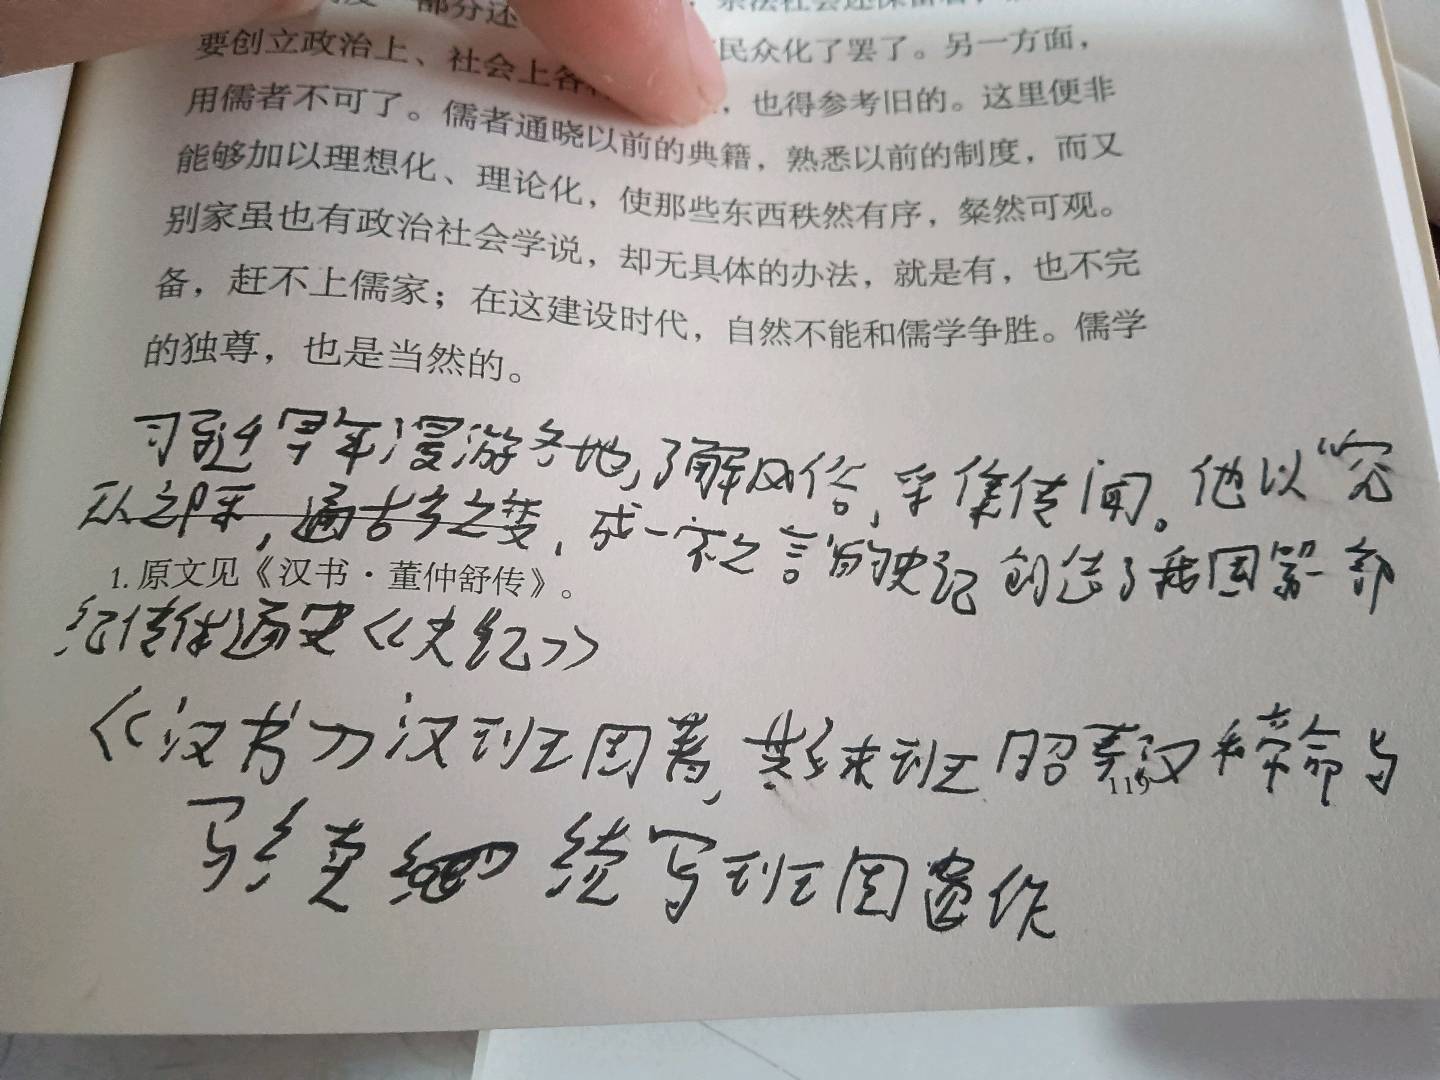 部分还
要创立政治上、社会上各 民众化了罢了。另一方面，
用儒者不可了。儒者通晓以前的典籍，熟悉以前的制度，而又
能够加以理想化、理论化，使那些东西秩然有序，粲然可观。
别家虽也有政治社会学说，却无具体的办法，就是有，也不完
备，赶不上儒家；在这建设时代，自然不能和儒学争胜。儒学
的独尊，也是当然的。
早年漫游各地，了解风俗，采集传闻。他以“究
之际，通古今之变，成一家之言”的史记创造了我国第一部
1. 原文见《汉书·董仲舒传》。
纪传体通史《史纪》
《汉书》汉班固著，其妹班昭奉汉和帝命与
119
续写班固遗作